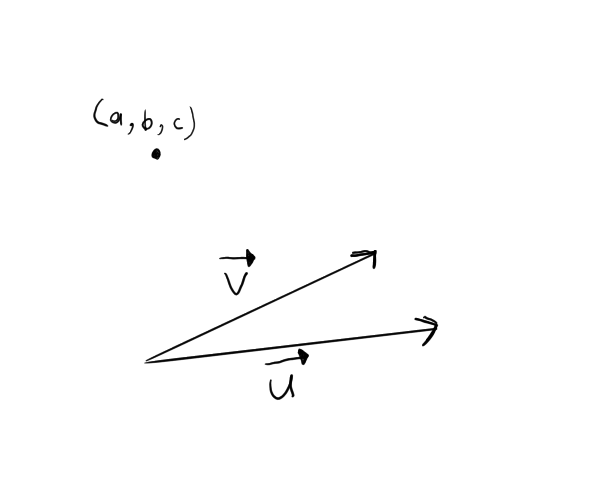 (a, b, c)
V
u